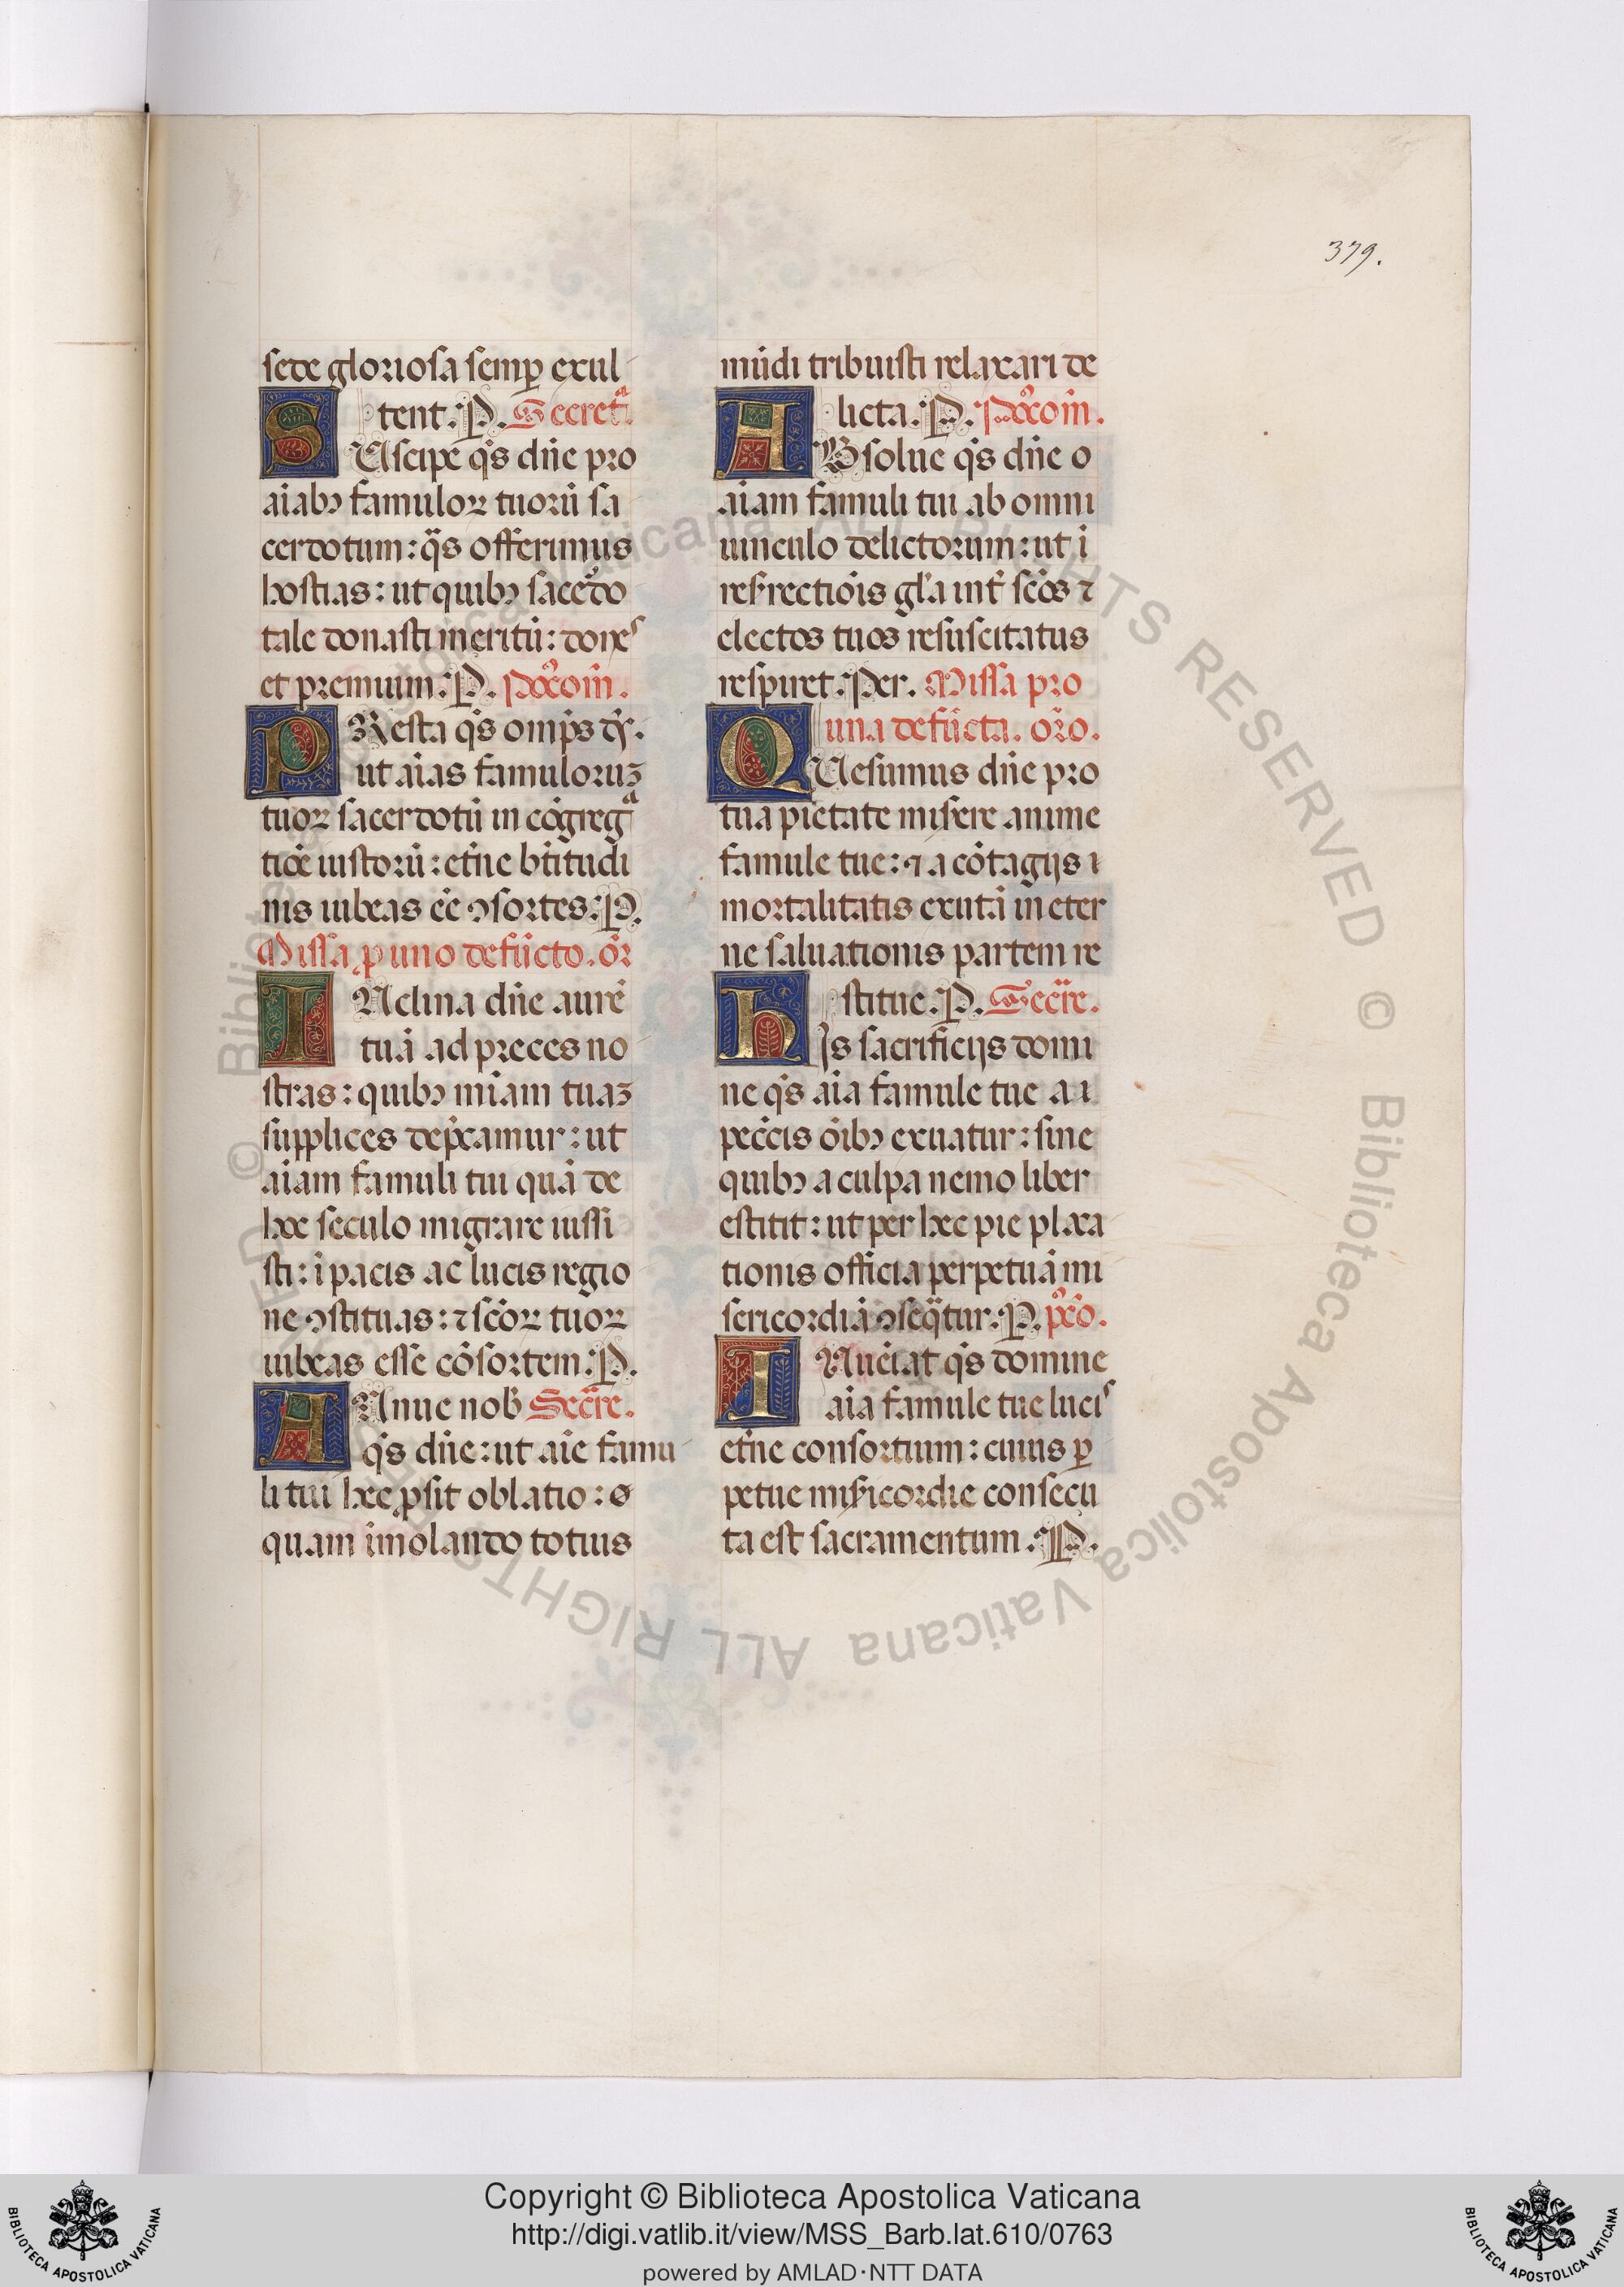 379.
sede gloriosa semp̲ exul
tent. P. Secret̃ᵃ.
SUscipe q̃s dñe pro
aiabꝫ famuloꝝ tuorũ sa
cerdotum: q̃s offerimus
hostias: ut quibꝫ sacerdo
tale donasti meritũ: dones
et premium. P. Pꝰcom̃.
PResta q̃s omp̃s dꝰs.
ut aĩas famuloruꝫ
tuoꝝ sacerdotũ in cõgregᵃ
tiõe iustorũ: et̃ne bt̃itudi
nis iubeas eẽ ꝯsortes. P.
Missa ꝑ uno defũcto. or̃
INclina dñe aurẽ
tuã ad preces no
stras: quibꝫ miam tuaꝫ
supplices dep̃camur: ut
aiam famuli tui quã de
hoc seculo migrare iussi
sti: ĩ pacis ac lucis regio
ne ꝯstituas: ⁊ scõꝝ tuoꝝ
iubeas esse cõsortem. P.
ANnue nob̃ Secr̃e.
q̃s dñe: ut aĩe famu
li tui hec ꝓsit oblatio:
quam ĩmolando totius
mũdi tribuisti relaxari de
licta. P. Pꝰcom̃.
ABsolue q̃s dñe
aĩam famuli tui ab omni
uinculo delictorum: ut ĩ
resr̃rectiõis gl̃a int̃ scõs ⁊
electos tuos resuscitatus
respiret. Per. Missa pro
una defũcta. or̃o.
QUesumus dñe pro
tua pietate misere anime
famule tue: ⁊ a cõtagijs
mortalitatis exutã in eter
ne saluationis partem re
stitue. P. Secr̃e.
hIs sacrificijs domi
ne q̃s aĩa famule tue a
pecc̃is õibꝫ exuatur: sine
quibꝫ a culpa nemo liber
estitit: ut per hec pie placa
tionis officia perpetuã mi
sericordiã ꝯseq̃tur. P. pꝰcõ.
INueñiat q̃s domine
aĩa famule tue lucis
et̃ne consortium: cuius ꝑ
petue mis̃icordie consecu
ta est sacramentum. P.
© Biblioteca Apostolica Vaticana ALL RIGHTS RESERVED © Biblioteca Apostolica Vaticana ALL RIGHTS RESERVED
Copyright © Biblioteca Apostolica Vaticana
http://digi.vatlib.it/view/MSS_Barb.lat.610/0763
powered by AMLAD·NTT DATA
BIBLIOTECA APOSTOLICA VATICANA
BIBLIOTECA APOSTOLICA VATICANA